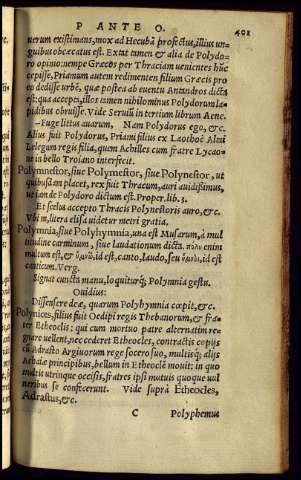 P ANTE O.
401
uerum existimans, mox ad Hecubã profectus, illius un-
guibus obcæcatus est. Extat tamen & alia de Polydo-
ro opinio: nempe Græcos per Thraciam uenientes hũc
cepisse, Priamum autem redimentem filium Græcis pro
eo dedisse urbẽ, quæ postea ab euentu Antandros dicta
est: qua accepta, illos tamen nihilominus Polydorum la-
pidibus obruisse. Vide Seruiũ in tertium librum Aene.
Fuge litus auarum, Nam Polydorus ego, &c.
Alius fuit Polydorus, Priami filius ex Laothoë Altæ
Lelegum regis filia, quem Achilles cum fratre Lycao-
ne in bello Troiano interfecit.
Polymnestor, siue Polymestor, siue Polynestor, ut
quibusdam placet, rex fuit Thracum, auri auidissimus,
ut iam de Polydoro dictum est. Proper. lib. 3.
Et scelus accepto Thracis Polynestoris auro, &c.
Vbi m, litera elisa uidetur metri gratia.
Polymnia, siue Polyhymnia, una est Musarum, à mul
titudine carminum, siue laudationum dicta. πολὺ enim
multum est, & ὑμνῶ, id est, canto, laudo, seu ὕμνος, id est
canticum. Verg.
Signat cuncta manu, loquiturq́; Polymnia gestu.
Ouidius:
Dissensere deæ, quarum Polyhymnia cœpit, &c.
Polynices, filius fuit Oedipi regis Thebanorum, & fra-
ter Etheoclis: qui cum mortuo patre alternatim re-
gnare uellent, nec cederet Etheocles, contractis copijs
cũ Adrasto Argiuorum rege socero suo, multisq́; alijs
Achaiæ principibus, bellum in Etheoclẽ mouit: in quo
multis utrinque occisis, fratres ipsi mutuis quoque uul
neribus se confecerunt. Vide suprà Etheocles,
Adrastus, &c.
C Polyphemus